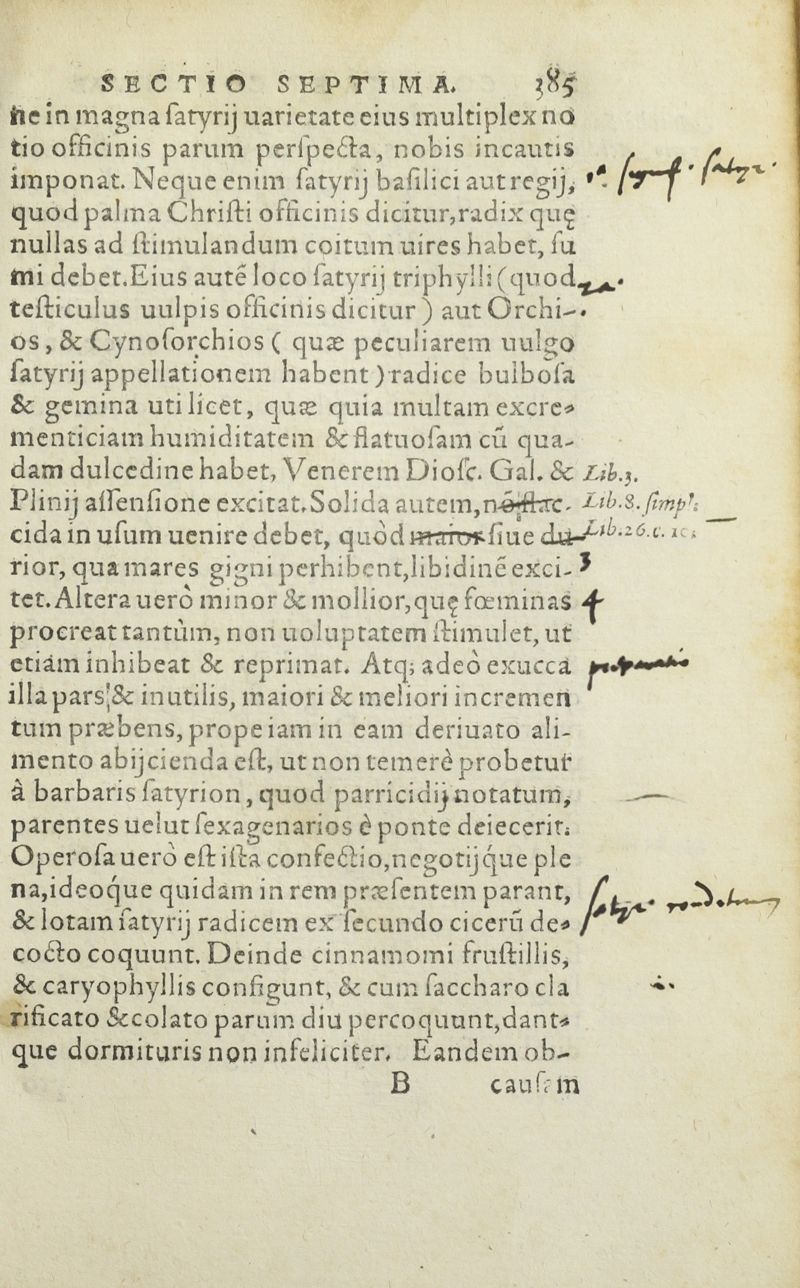 SECTIO SEPTIMA. 385
ne in magna ſatyrij uarietate eius multiplex no
tio officinis parum perſpecta, nobis incautis
imponat. Neque enim ſatyrij baſilici aut regij,
quod palma Chriſti officinis dicitur, radix quę
nullas ad ſtimulandum coitum uires habet, ſu
mi debet. Eius autẽ loco ſatyrij triphylli (quod
teſticulus uulpis officinis dicitur) aut Orchi-
os, & Cynoſorchios ( quæ peculiarem uulgo
ſatyrij appellationem habent) radice bulboſa
& gemina uti licet, quæ quia multam excre-
menticiam humiditatem & flatuoſam cũ qua-
dam dulcedine habet, Venerem Dioſc. Gal. & Lib.3.
Plinij aſſenſione excitat. Solida autem, nõ flac- Lib.8.ſimpl.
cida in uſum uenire debet, quòd maior ſiue du- Lib.26.c.10.
rior, qua mares gigni perhibent, libidinẽ exci-
tet. Altera uerò minor & mollior, quę fœminas
procreat tantùm, non uoluptatem ſtimulet, ut
etiàm inhibeat & reprimat. Atq; adeò exucca
illa pars, & inutilis, maiori & meliori incremen
tum præbens, prope iam in eam deriuato ali-
mento abijcienda eſt, ut non temerè probetur
à barbaris ſatyrion, quod parricidij notatum,
parentes uelut ſexagenarios è ponte deiecerit.
Operoſa uerò eſt iſta confectio, negotijque ple
na, ideoque quidam in rem præſentem parant,
& lotam ſatyrij radicem ex ſecundo cicerũ de-
cocto coquunt. Deinde cinnamomi fruſtillis,
& caryophyllis configunt, & cum ſaccharo cla
rificato & colato parum diu percoquunt, dant-
que dormituris non infeliciter. Eandem ob-
B cauſam